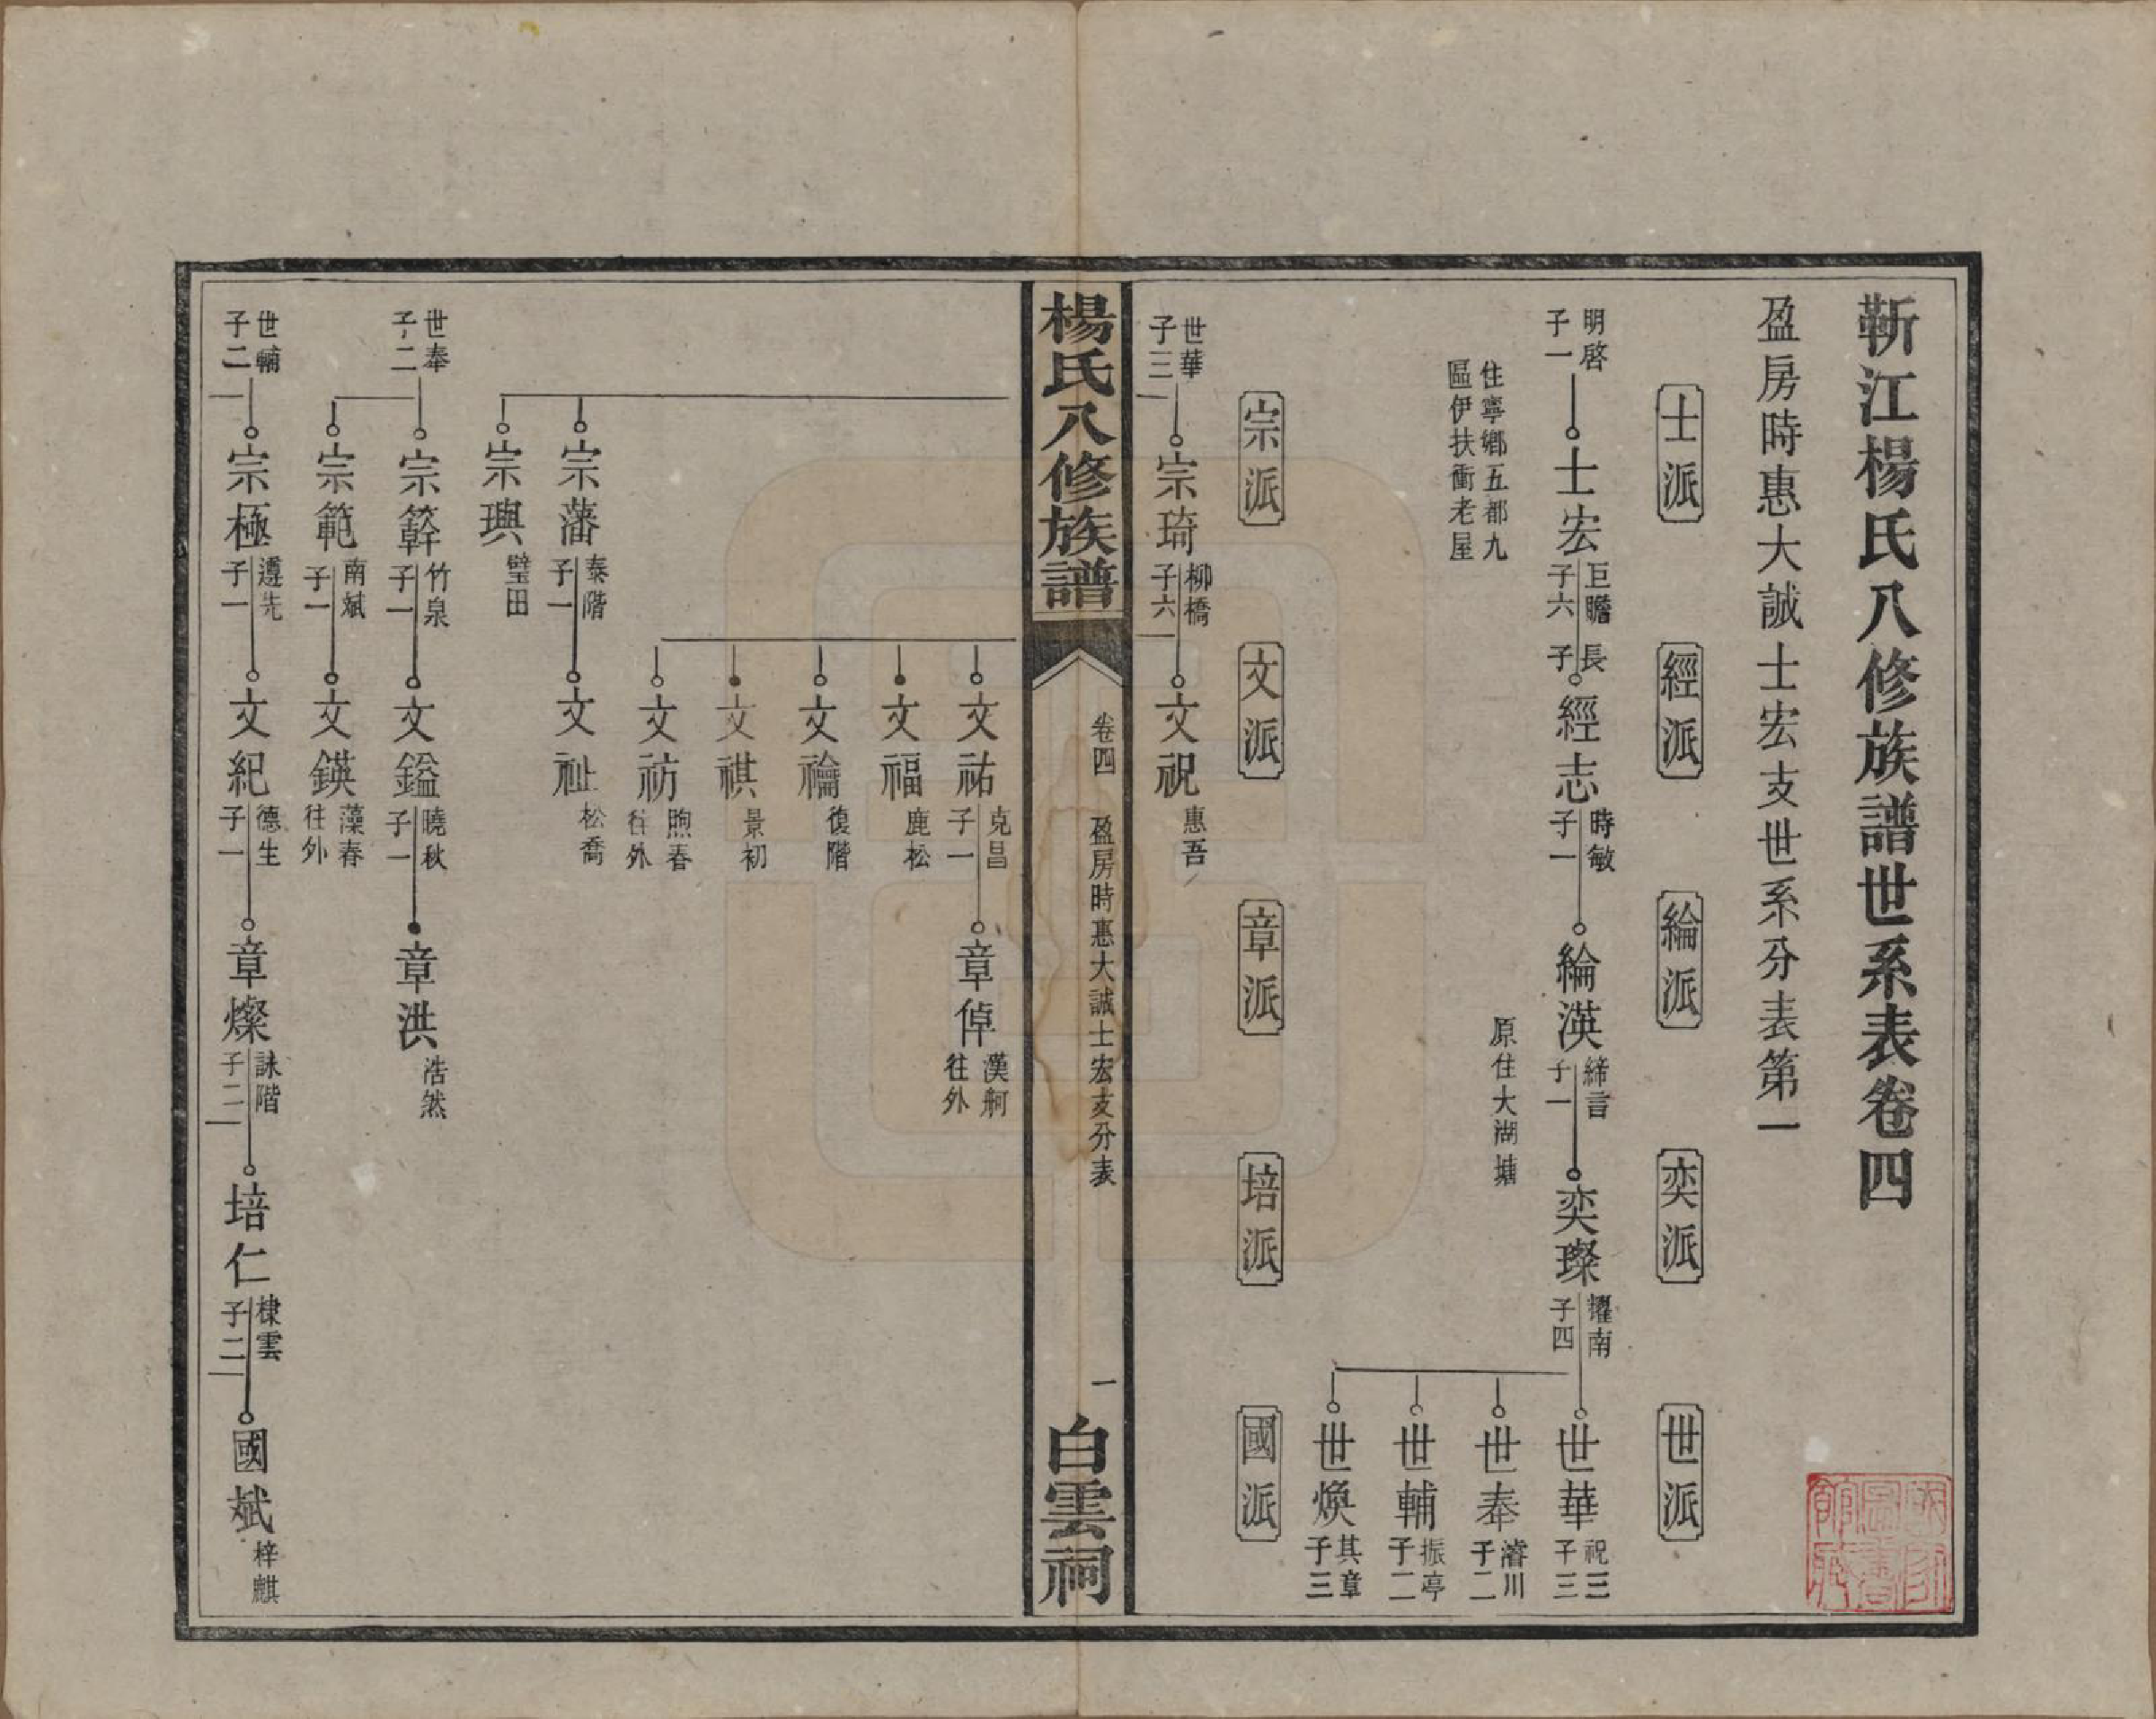 靳江楊氏八修族譜世系表卷四
盈房時惠大誠士宏支世系分表第一
士派
經派
綸派
奕派
世派
明啓
子一
士宏
巨瞻
子六
長子
經志
時敏
子一
綸漢
締言
子一
奕璨
耀南
子四
世華
祝三
子三
住寧鄉五都九
區伊扶衝老屋
原住大湖塘
世奉
濬川
子二
世輔
振亭
子二
世煥
其章
子三
宗派
文派
章派
培派
國派
世華
子三
宗琦
柳橋
子六
文祝
惠吾
楊氏八修族譜
卷四
盈房時惠大誠士宏支分表
一
白雲祠
文祐
克昌
子一
章倬
漢舸
往外
文福
鹿松
文禴
復階
文祺
景初
文祊
煦春
往外
宗藩
泰階
子一
文祉
松喬
宗璵
璧田
世奉
子二
宗簳
竹泉
子一
文鎰
曉秋
子一
章洪
浩然
宗範
南斌
子一
文鍈
藻春
往外
世輔
子二
宗極
遵先
子一
文紀
德生
子一
章燦
詠階
子二
培仁
棣雲
子二
國斌
梓麒